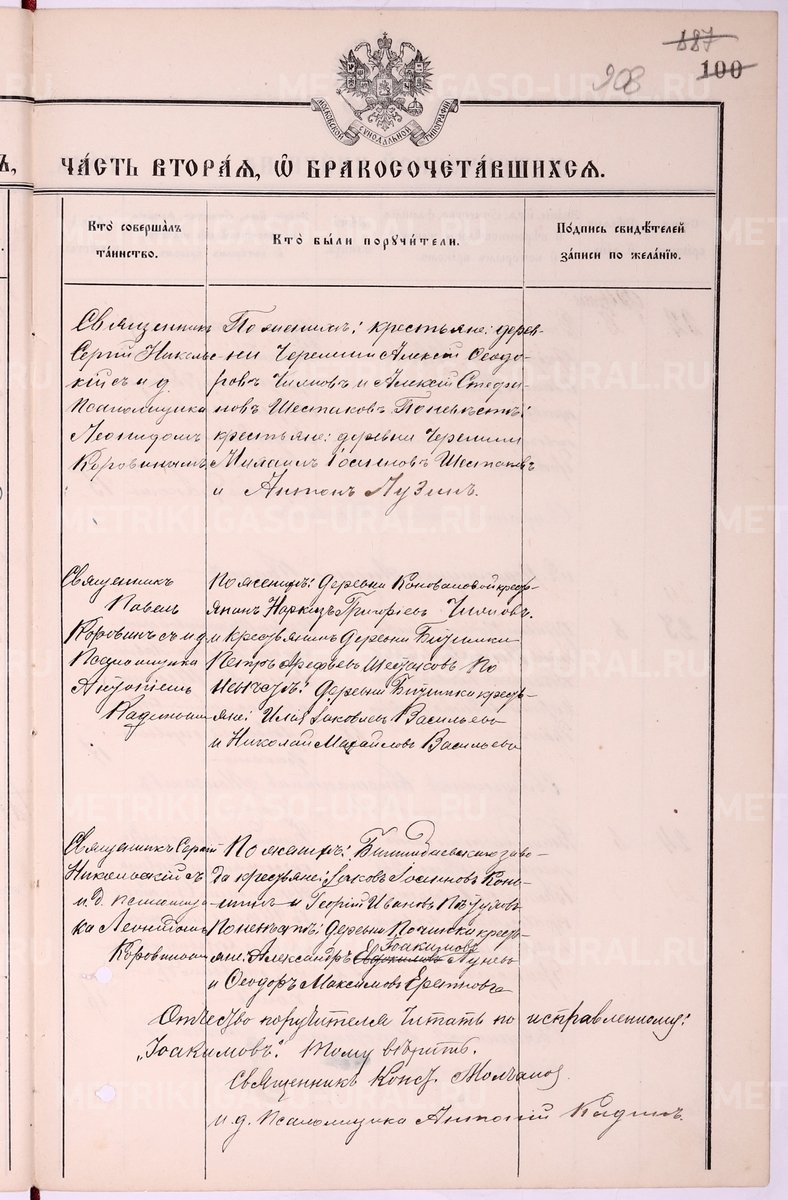 187
908
100
МОСКОВСКОЙ СѴНОДАЛЬНОЙ ТИПОГРАФІИ
Ъ,
ЧА́СТЬ ВТОРА́Я, Ѡ҆ БРАКОСОЧЕТА́ВШИХСЯ.
Кто̀ соверша́лъ
та́инство.
Кто̀ бы́ли поручи́тели.
По́дпись свидѣ́телей
за́писи по жела́нію.
Священникъ
Сергій Николь-
скій съ и. д.
Псаломщика
Леонидомъ
Коровинымъ
По женихѣ: крестьяне: дерев-
ни Черемши Алексѣй Ѳеодо-
ровъ и Алексѣй Стефа-
новъ Шестаковъ. По невѣстѣ:
крестьяне: деревни Черемши
Михаилъ Іоанновъ Шестаковъ
и Антонъ Лузинъ.
Священникъ
Павелъ
Коровинъ съ и. д.
Псаломщика
Антоніемъ
По женихѣ: Деревни Коноваловой крест-
янинъ Григоріевъ
и крестьянинъ Деревни
Петръ Арефьевъ Шестаковъ По
невѣстѣ: Деревни кресть-
яне: Илія Іаковлевъ Васильевъ
и Николай Михайловъ Васильевъ
Священникъ Сергій
Никольскій съ
и. д. псаломщи-
ка Леонидомъ
Коровинымъ
По женихѣ: Билимбаевскаго заво-
да крестьяне: Іаковъ Іоанновъ
и Георгій Ивановъ
По невѣстѣ: Деревни Починка крест-
яне: Александръ Іоакимовъ
и Ѳеодоръ Максимовъ
Отчество поручителя читать по исправленному:
„Іоакимовъ". Тому вѣрить.
Священникъ Конст. Молчановъ
и. д. Псаломщика Антоній
METRIKI.GASO-URAL.RU